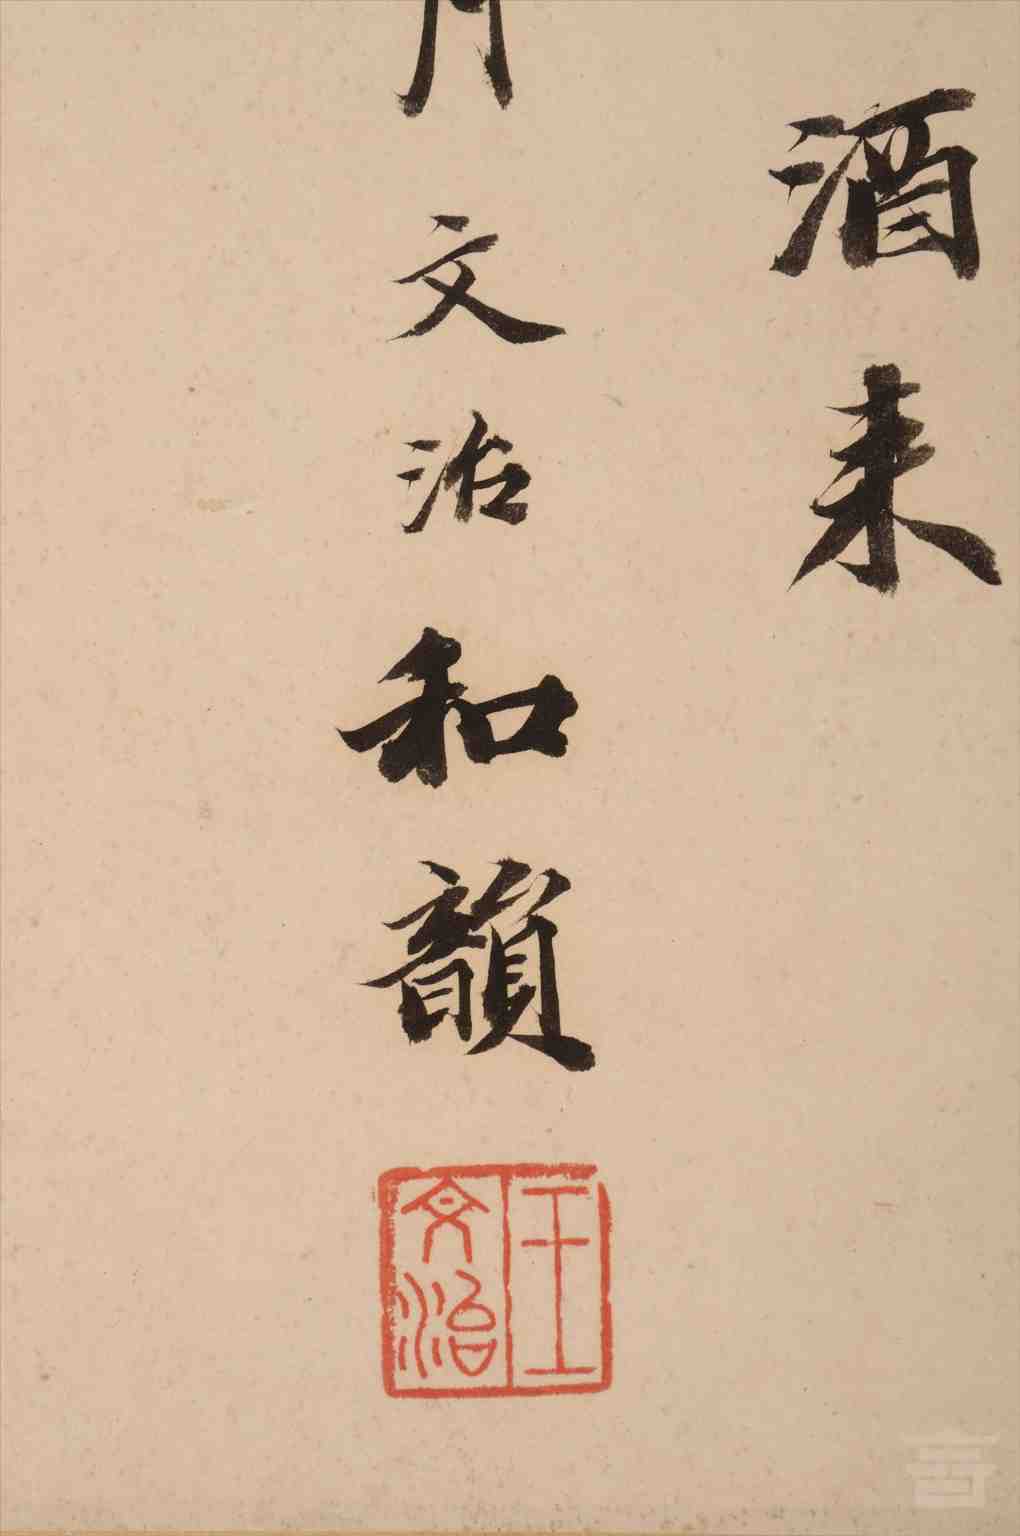 酒来
月文治和韻
王文治